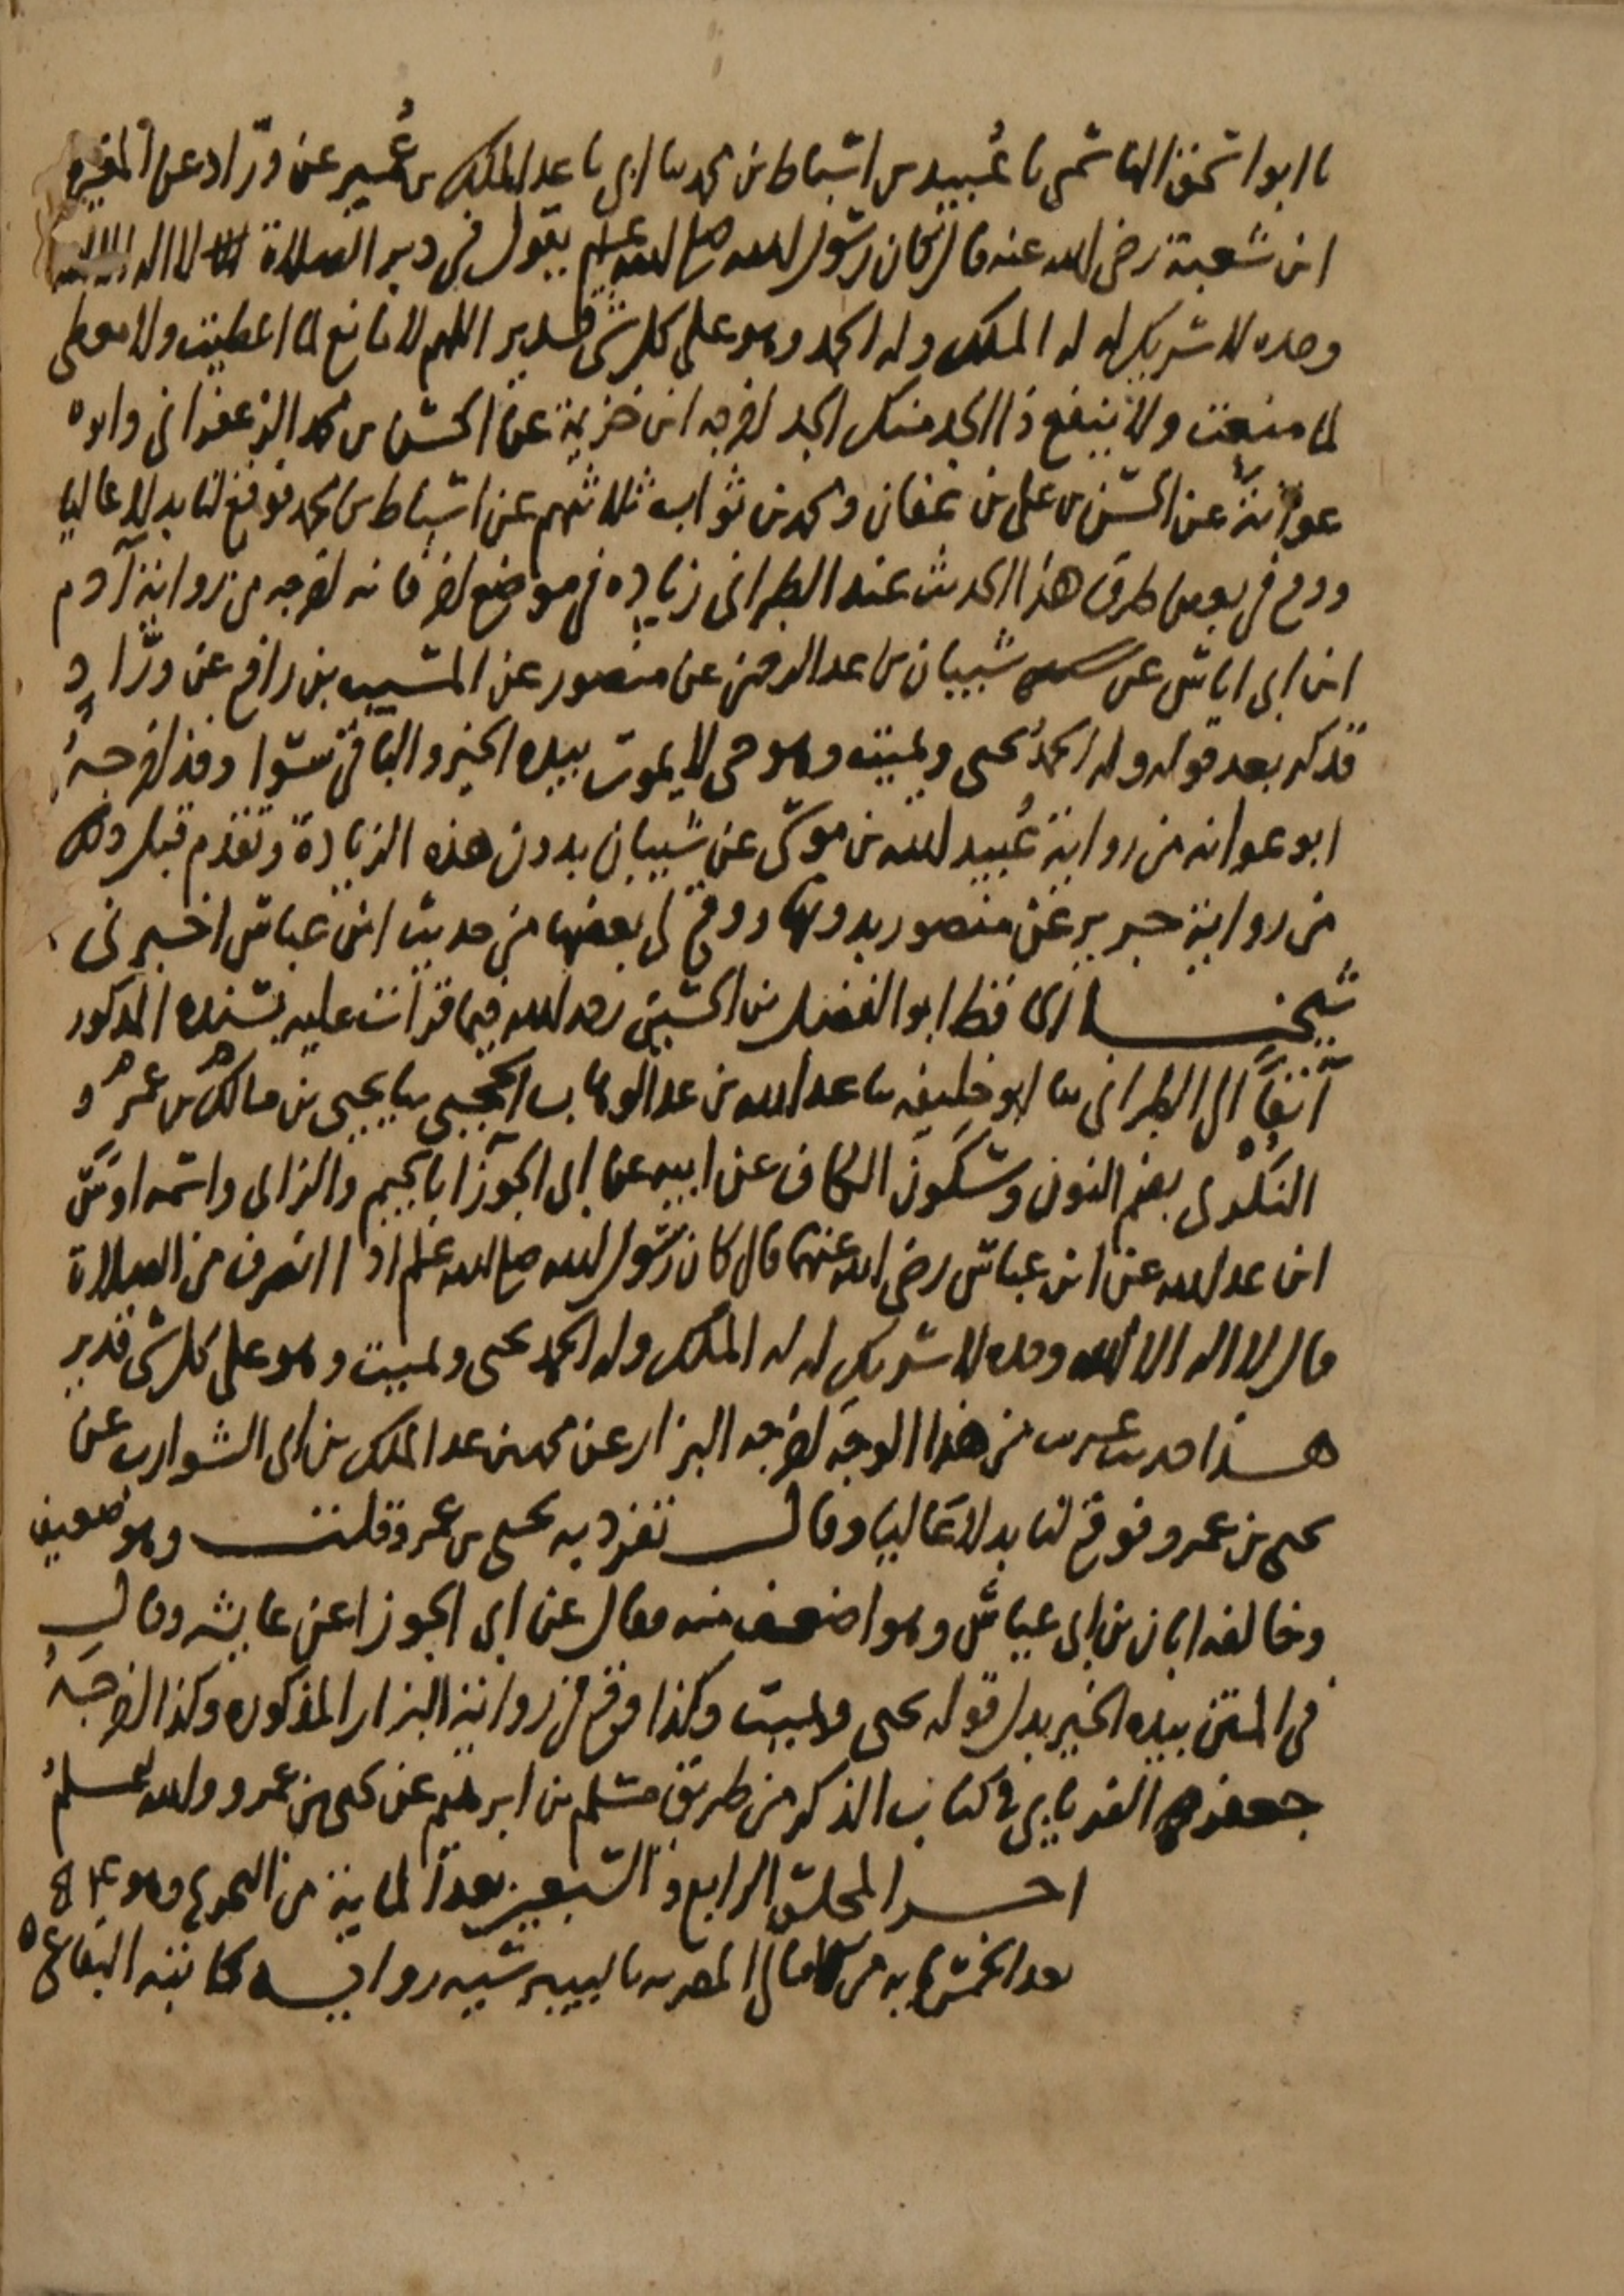 نا ابو اسحق الهاشمي نا عُبيد بن اسباط بن محمد ثنا ابي نا عبد الملك بن عُمير عن ورّاد عن المغيرة
ابن شعبة رضي الله عنه قال كان رسول الله صلى الله عليه وسلم يقول في دبر الصلاة لا اله الا الله
وحده لا شريك له له الملك وله الحمد وهو على كل شي قدير اللهم لا مانع لما اعطيت ولا معطي
لما منعت ولا ينفع ذا الجد منك الجد اخرجه ابن خزيمة عن الحسن بن محمد الزعفراني وابو
عوانة عن الحسن بن علي بن عفان ومحمد بن ثواب ثلاثتهم عن اسباط بن محمد فوقع لنا بدلا عاليا
ووقع في بعض طرق هذا الحديث عند الطبراني زيادة في موضع اخر فانه اخرجه من رواية آدم
ابن ابي اياس عن شيبان بن عبد الرحمن عن منصور عن المسيب بن رافع عن ورّاد
فذكر بعد قوله وله الحمدُ يحيي ويميت وهو حي لا يموت بيده الخير والباقي سوا وقد اخرجهُ
ابو عوانه من رواية عُبيد الله بن موسى عن شيبان بدون هذه الزيادة وتقدم قبل ذلك
من رواية جرير عن منصور بدونها ووقع لي بعضها من حديث ابن عباس اخبرني
شيخنا الحافظ ابو الفضل بن الحسين رحمه الله فيما قرأت عليه بسنده المذكور
آنفاً الى الطبراني ثنا ابو خليفه ثنا عبد الله بن عبد الوهاب الحجبي ثنا يحيى بن مالك بن عمرو
النُكْري بضم النون وسكون الكاف عن ابيه عن ابي الجوزا بالجيم والزاي واسمه اوس
ابن عبد الله عن ابن عباس رضي الله عنهما قال كان رسول الله صلى الله عليه وسلم اذا انصرف من الصلاة
قال لا اله الا الله وحده لا شريك له له الملك وله الحمد يحيي ويميت وهو على كل شي قدير
هذا حديث غريب من هذا الوجه اخرجه البزار عن محمد بن عبد الملك بن ابي الشوارب عن
يحيى بن عمرو فوقع لنا بدلا عاليا وقال تفرد به يحيى بن عمرو قلت وهو ضعيف
وخالفه ابان بن ابي عياش وهو اضعف منه فقال عن ابي الجوزا عن عايشه وقال
في المتن بيده الخير بدل قوله يحيي ويميت وكذا وقع في رواية البزار المذكوره وكذا اخرجهُ
جعفر الفريابي في كتاب الذكر من طريق مسلم بن ابرهيم عن يحيى بن عمرو والله اعلمُ
اخر المجلس الرابع والتسعين بعد الماية من التخريج وهو
بعد الخمسمايه من الامالي المصريه بالبيبرسيه رواية كاتبه البقاعي